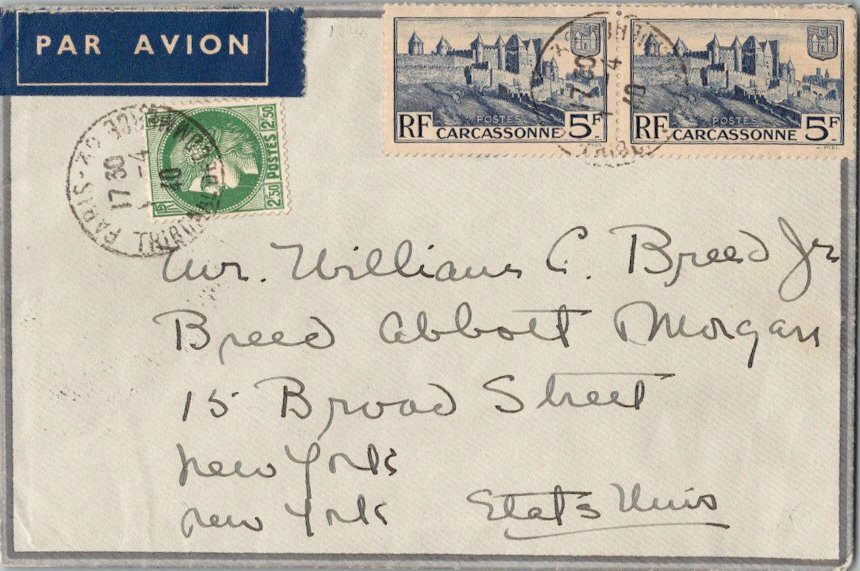 PAR AVION
RF POSTES CARCASSONNE 5F
RF POSTES CARCASSONNE 5F
POSTES 2F50
PARIS-
17 30
1 -4
40
17 30
1 -4
40
Mr. William C. Breed Jr
Breed Abbott Morgan
15 Broad Street
New York
New York Etats Unis